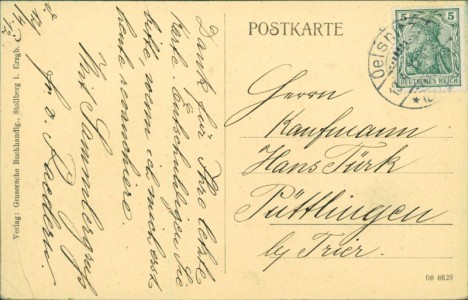 POSTKARTE
Dank für Ihre letzte
Karte. Entschuldigen Sie
bitte, wenn ich mich erst
heute revanchiere.
Mit Sammlergruß
Verlag: Grasersche Buchhandlg., Stollberg i. Erzgb.
5 5
DEUTSCHES REICH
Oelsn
Herrn
Kaufmann
Hans Türk
Püttlingen
by Trier.
08 8628